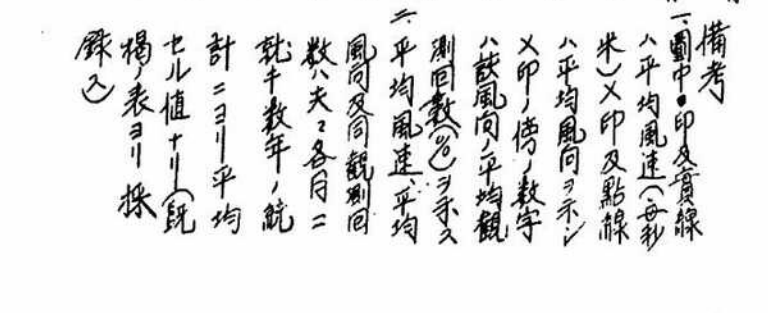 備考
一、圖中●印及實線
ハ平均風速(每秒
米)×印及點線
ハ平均風向ヲ示シ
×印ノ傍ノ数字
ハ該風向ノ平均觀
測回數(%)ヲ示ス
二、平均風速、平均
風向及同觀測回
数ハ夫々各月ニ
就キ数年ノ統
計ニヨリ平均
セル値ナリ(既
掲ノ表ヨリ採
錄ス)